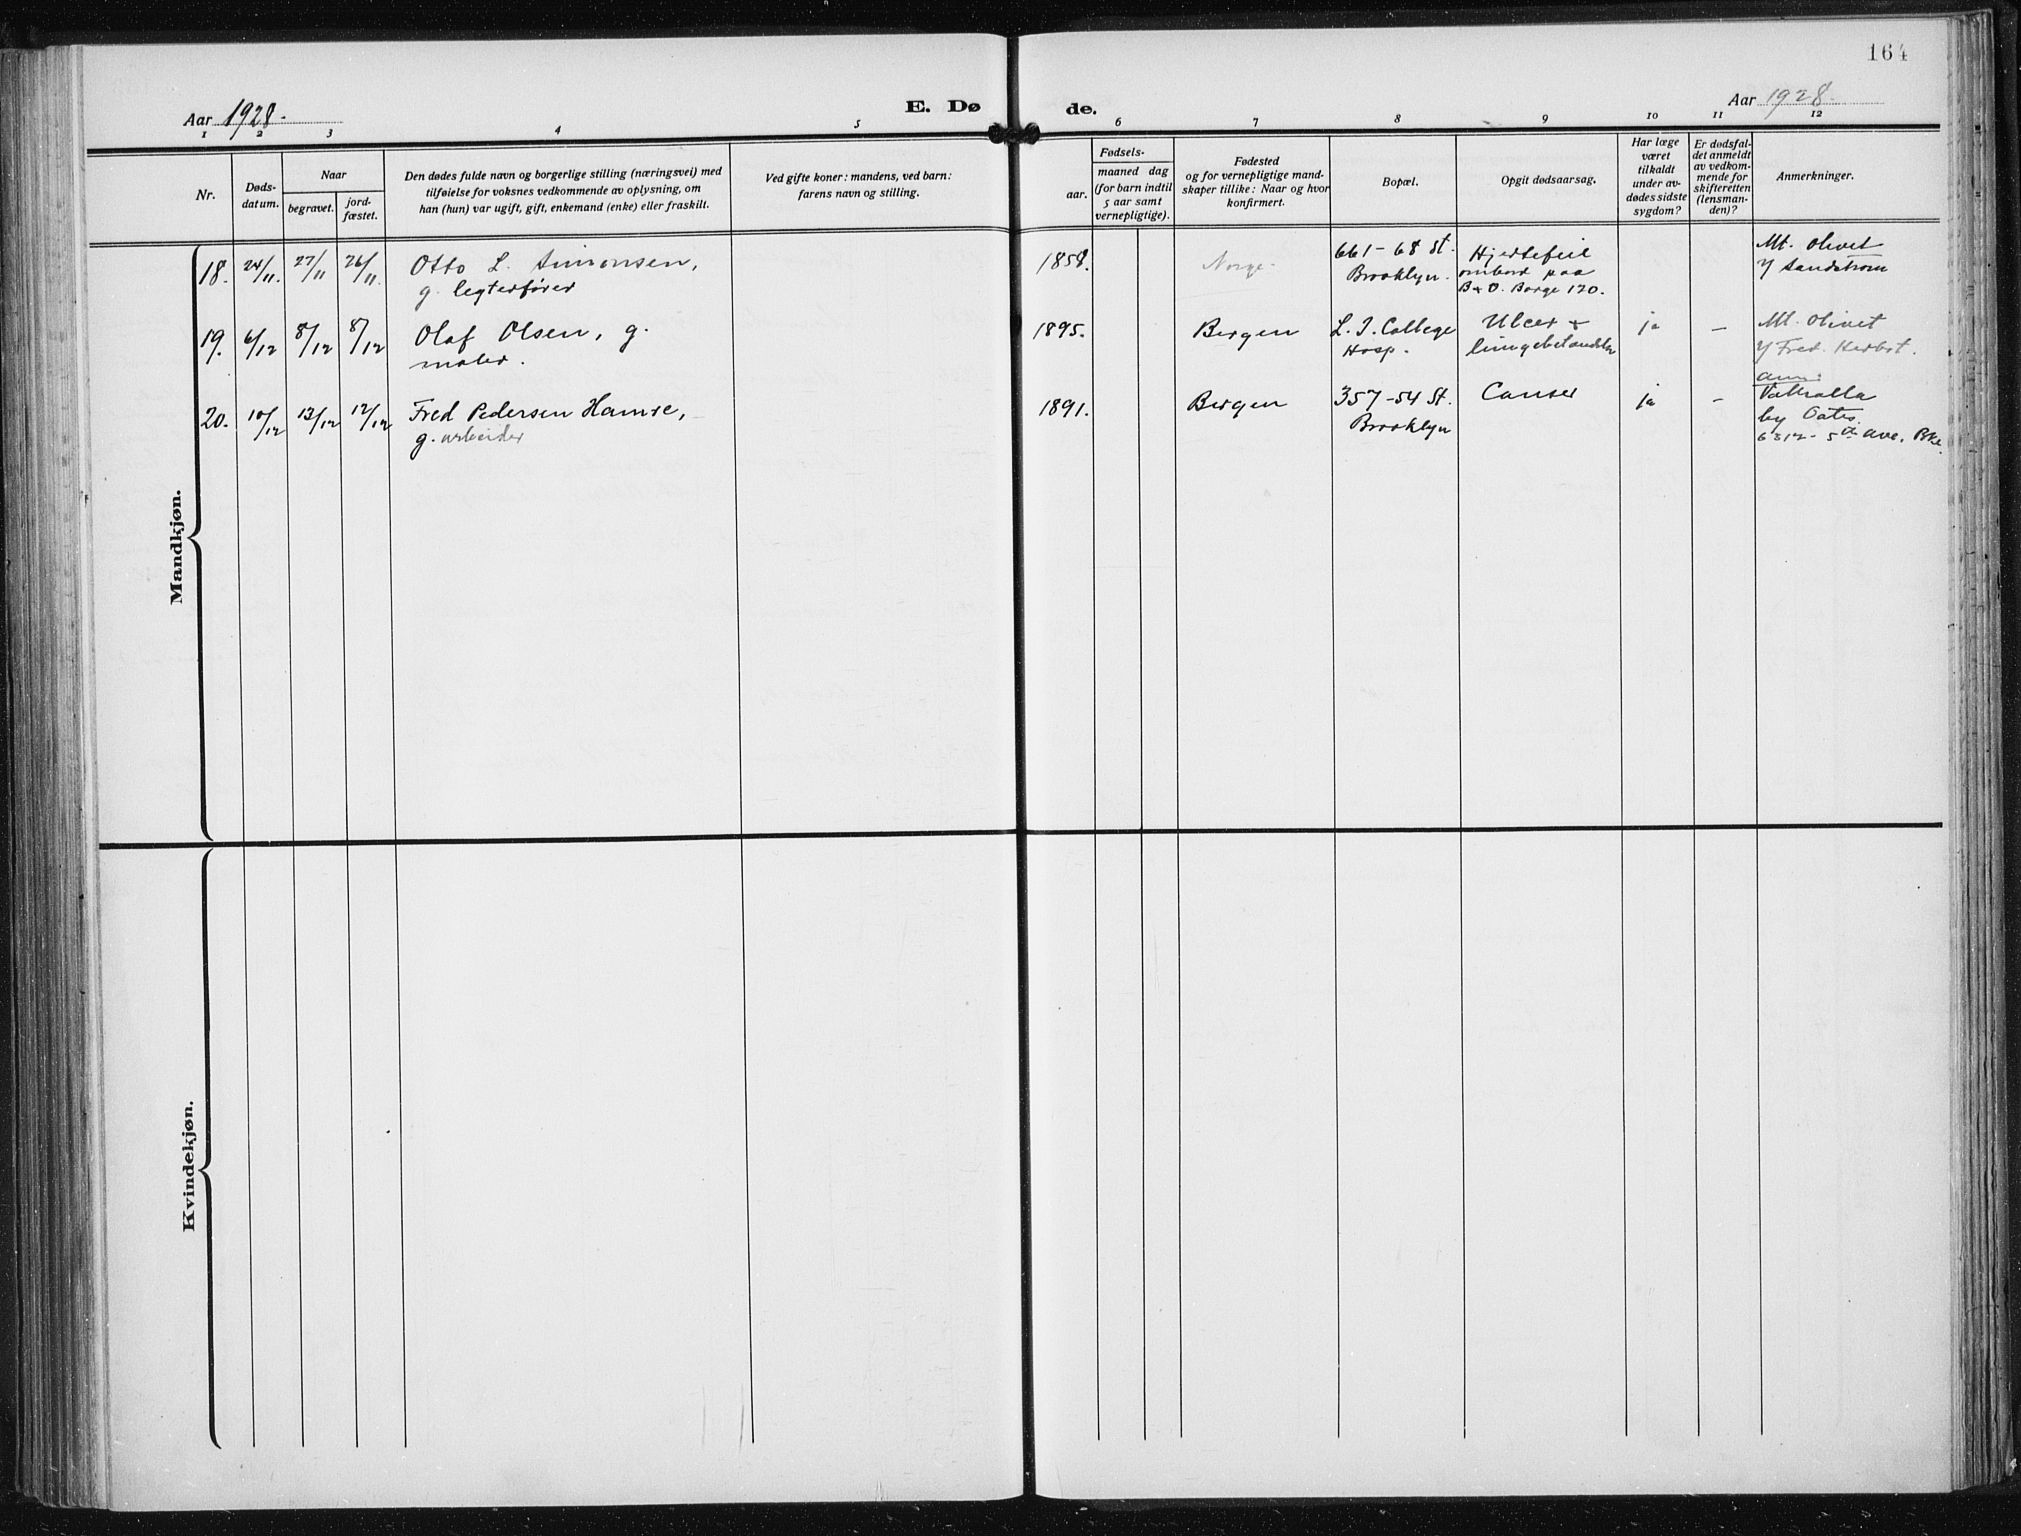 164
Aar 1928.
E. Dø
de.
Aar 1928.
1 2 3 4 5 6 7 8 9 10 11 12
Nr.
Døds-
datum.
Naar
begravet.
jord-
fæstet.
Den dødes fulde navn og borgerlige stilling (næringsvei) med
tilføielse for voksnes vedkommende av oplysning, om
han (hun) var ugift, gift, enkemand (enke) eller fraskilt.
Ved gifte koner: mandens, ved barn:
farens navn og stilling.
Fødsels-
aar.
maaned dag
(for barn indtil
5 aar samt
vernepligtige).
Fødested
og for vernepligtige mand-
skaper tillike: Naar og hvor
konfirmert.
Bopæl.
Opgit dødsaarsag.
Har læge
været
tilkaldt
under av-
dødes sidste
sygdom?
Er dødsfal-
det anmeldt
av vedkom-
mende for
skifteretten
(lensman-
den)?
Anmerkninger.
Mandkjøn.
18. 24/11. 27/11 26/11. Otto L. Simonsen,
g. legterfører
1858.
Norge.
661-68 St.
Brooklyn.
Hjertefeil
ombord paa
B & O. Barge 170.
Mt. Olivet
y Sandstrom
19. 6/12 8/12 8/12 Olaf Olsen, g.
maler.
1895.
Bergen
L. I. College
Hosp.
Ulcer +
ja
–
Mt. Olivet
y Fred. Herbst.
20. 10/12 13/12 12/12 Fred Pedersen Hamre,
g. arbeider
1891.
Bergen
357-54 St.
Brooklyn
Canser
ja
–
Valhalla
by Oates
6312 - 5th Ave.
Kvindekjøn.